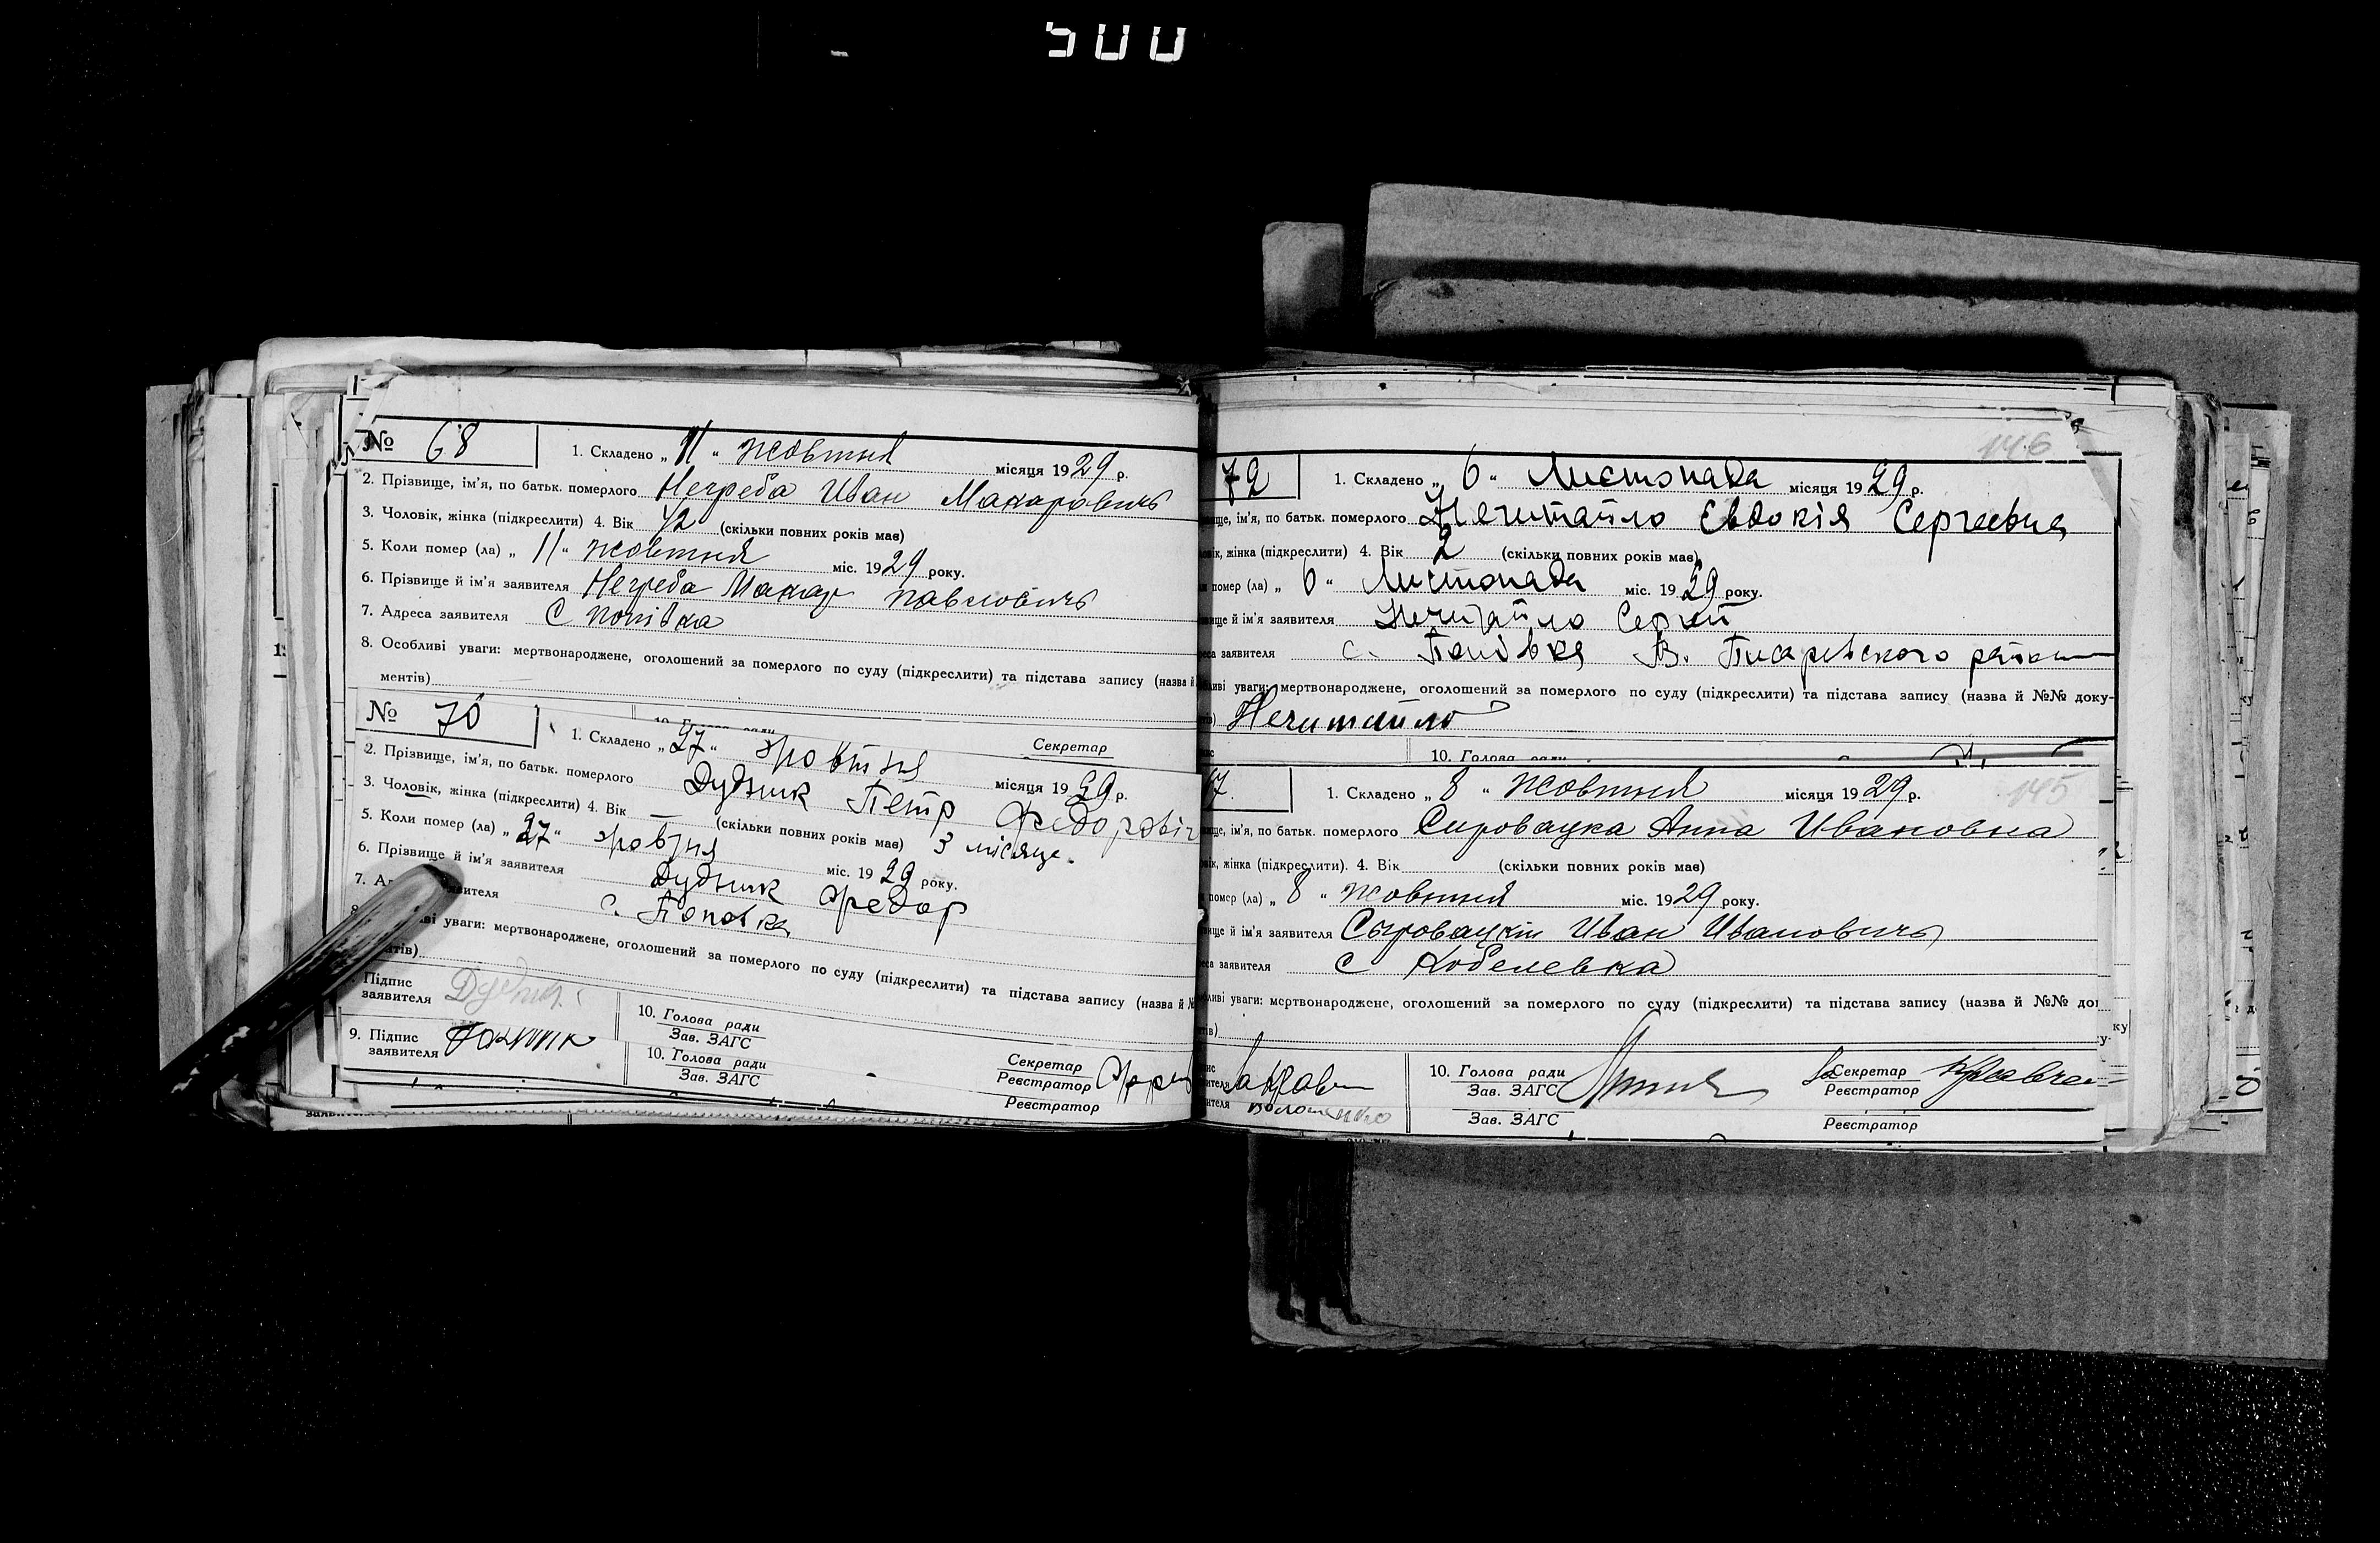 500
№ 68 1. Складено „ 11 “ жовтня місяця 1929 р.
2. Прізвище, ім'я, по батьк. померлого Негреба Иван Макаровичъ
3. Чоловік, жінка (підкреслити) 4. Вік 1/2 (скільки повних років має)
5. Коли помер (ла) „ 11 “ жовтня міс. 1929 року.
6. Прізвище й ім'я заявителя Негреба Макар павловичъ
7. Адреса заявителя С попівка
8. Особливі уваги: мертвонароджене, оголошений за померлого по суду (підкреслити) та підстава запису (назва й
ментів)
Секретар
№ 70 1. Складено „ 27 “ жовтня місяця 1929 р.
2. Прізвище, ім'я, по батьк. померлого Дудник Петр Федоровіч
3. Чоловік, жінка (підкреслити) 4. Вік — (скільки повних років має) 3 місяце.
5. Коли помер (ла) „ 27 “ жовтня міс. 1929 року.
6. Прізвище й ім'я заявителя Дудник Федор
7. Ад явителя с. Поповка
ві уваги: мертвонароджене, оголошений за померлого по суду (підкреслити) та підстава запису (назва й №
нтів)
Підпис заявителя Дудник 10. Голова ради Зав. ЗАГС
9. Підпис заявителя 10. Голова ради Зав. ЗАГС Секретар Реєстратор
Реєстратор
146
72 1. Складено „ 6 “ Листопада місяця 1929 р.
ище, ім'я, по батьк. померлого Нечитайло Євдокія Сергеевна
овік, жінка (підкреслити) 4. Вік 2 (скільки повних років має)
и помер (ла) „ 6 “ Листопада міс. 1929 року.
вище й ім'я заявителя Нечитайло Сергій
реса заявителя с. Попівка В. Писарівского району
бливі уваги: мертвонароджене, оголошений за померлого по суду (підкреслити) та підстава запису (назва й №№ доку-
тів) Нечитайло
10. Голова ради
67. 1. Складено „ 8 “ жовтня місяця 1929 р. 145
ище, ім'я, по батьк. померлого Сыровацка Анна Ивановна
вік, жінка (підкреслити). 4. Вік (скільки повних років має)
помер (ла) „ 8 “ жовтня міс. 1929 року.
вище й ім'я заявителя Сыровацкий Иван Ивановичъ
реса заявителя С Кобелевка
бливі уваги: мертвонароджене, оголошений за померлого по суду (підкреслити) та підстава запису (назва й №№ до
тів)
10. Голова ради Зав. ЗАГС Секретар Реєстратор Кравчен
Зав. ЗАГС Реєстратор